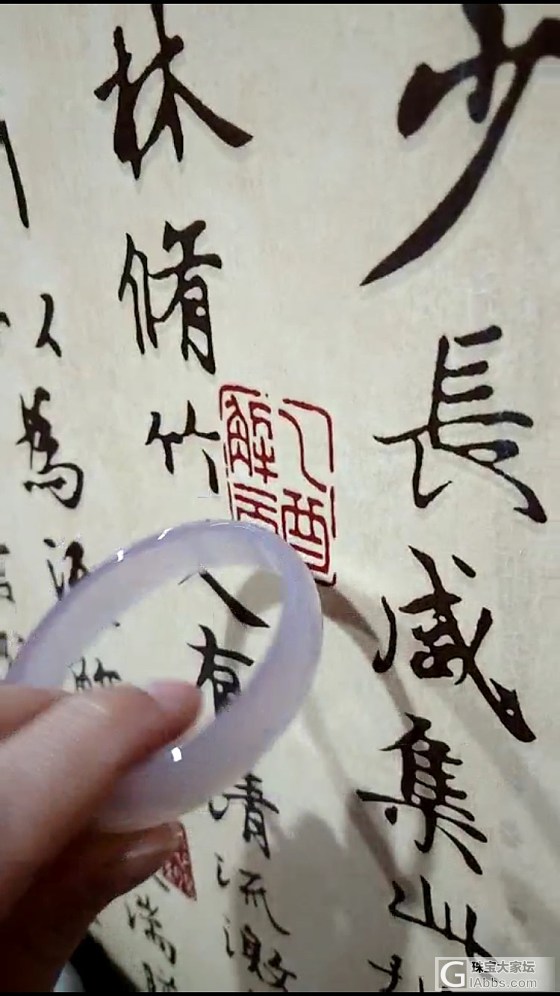 少長咸集此
乙酉
解
林脩竹又有清流激
湍
以為流
珠宝大家坛
GIAbbs.com